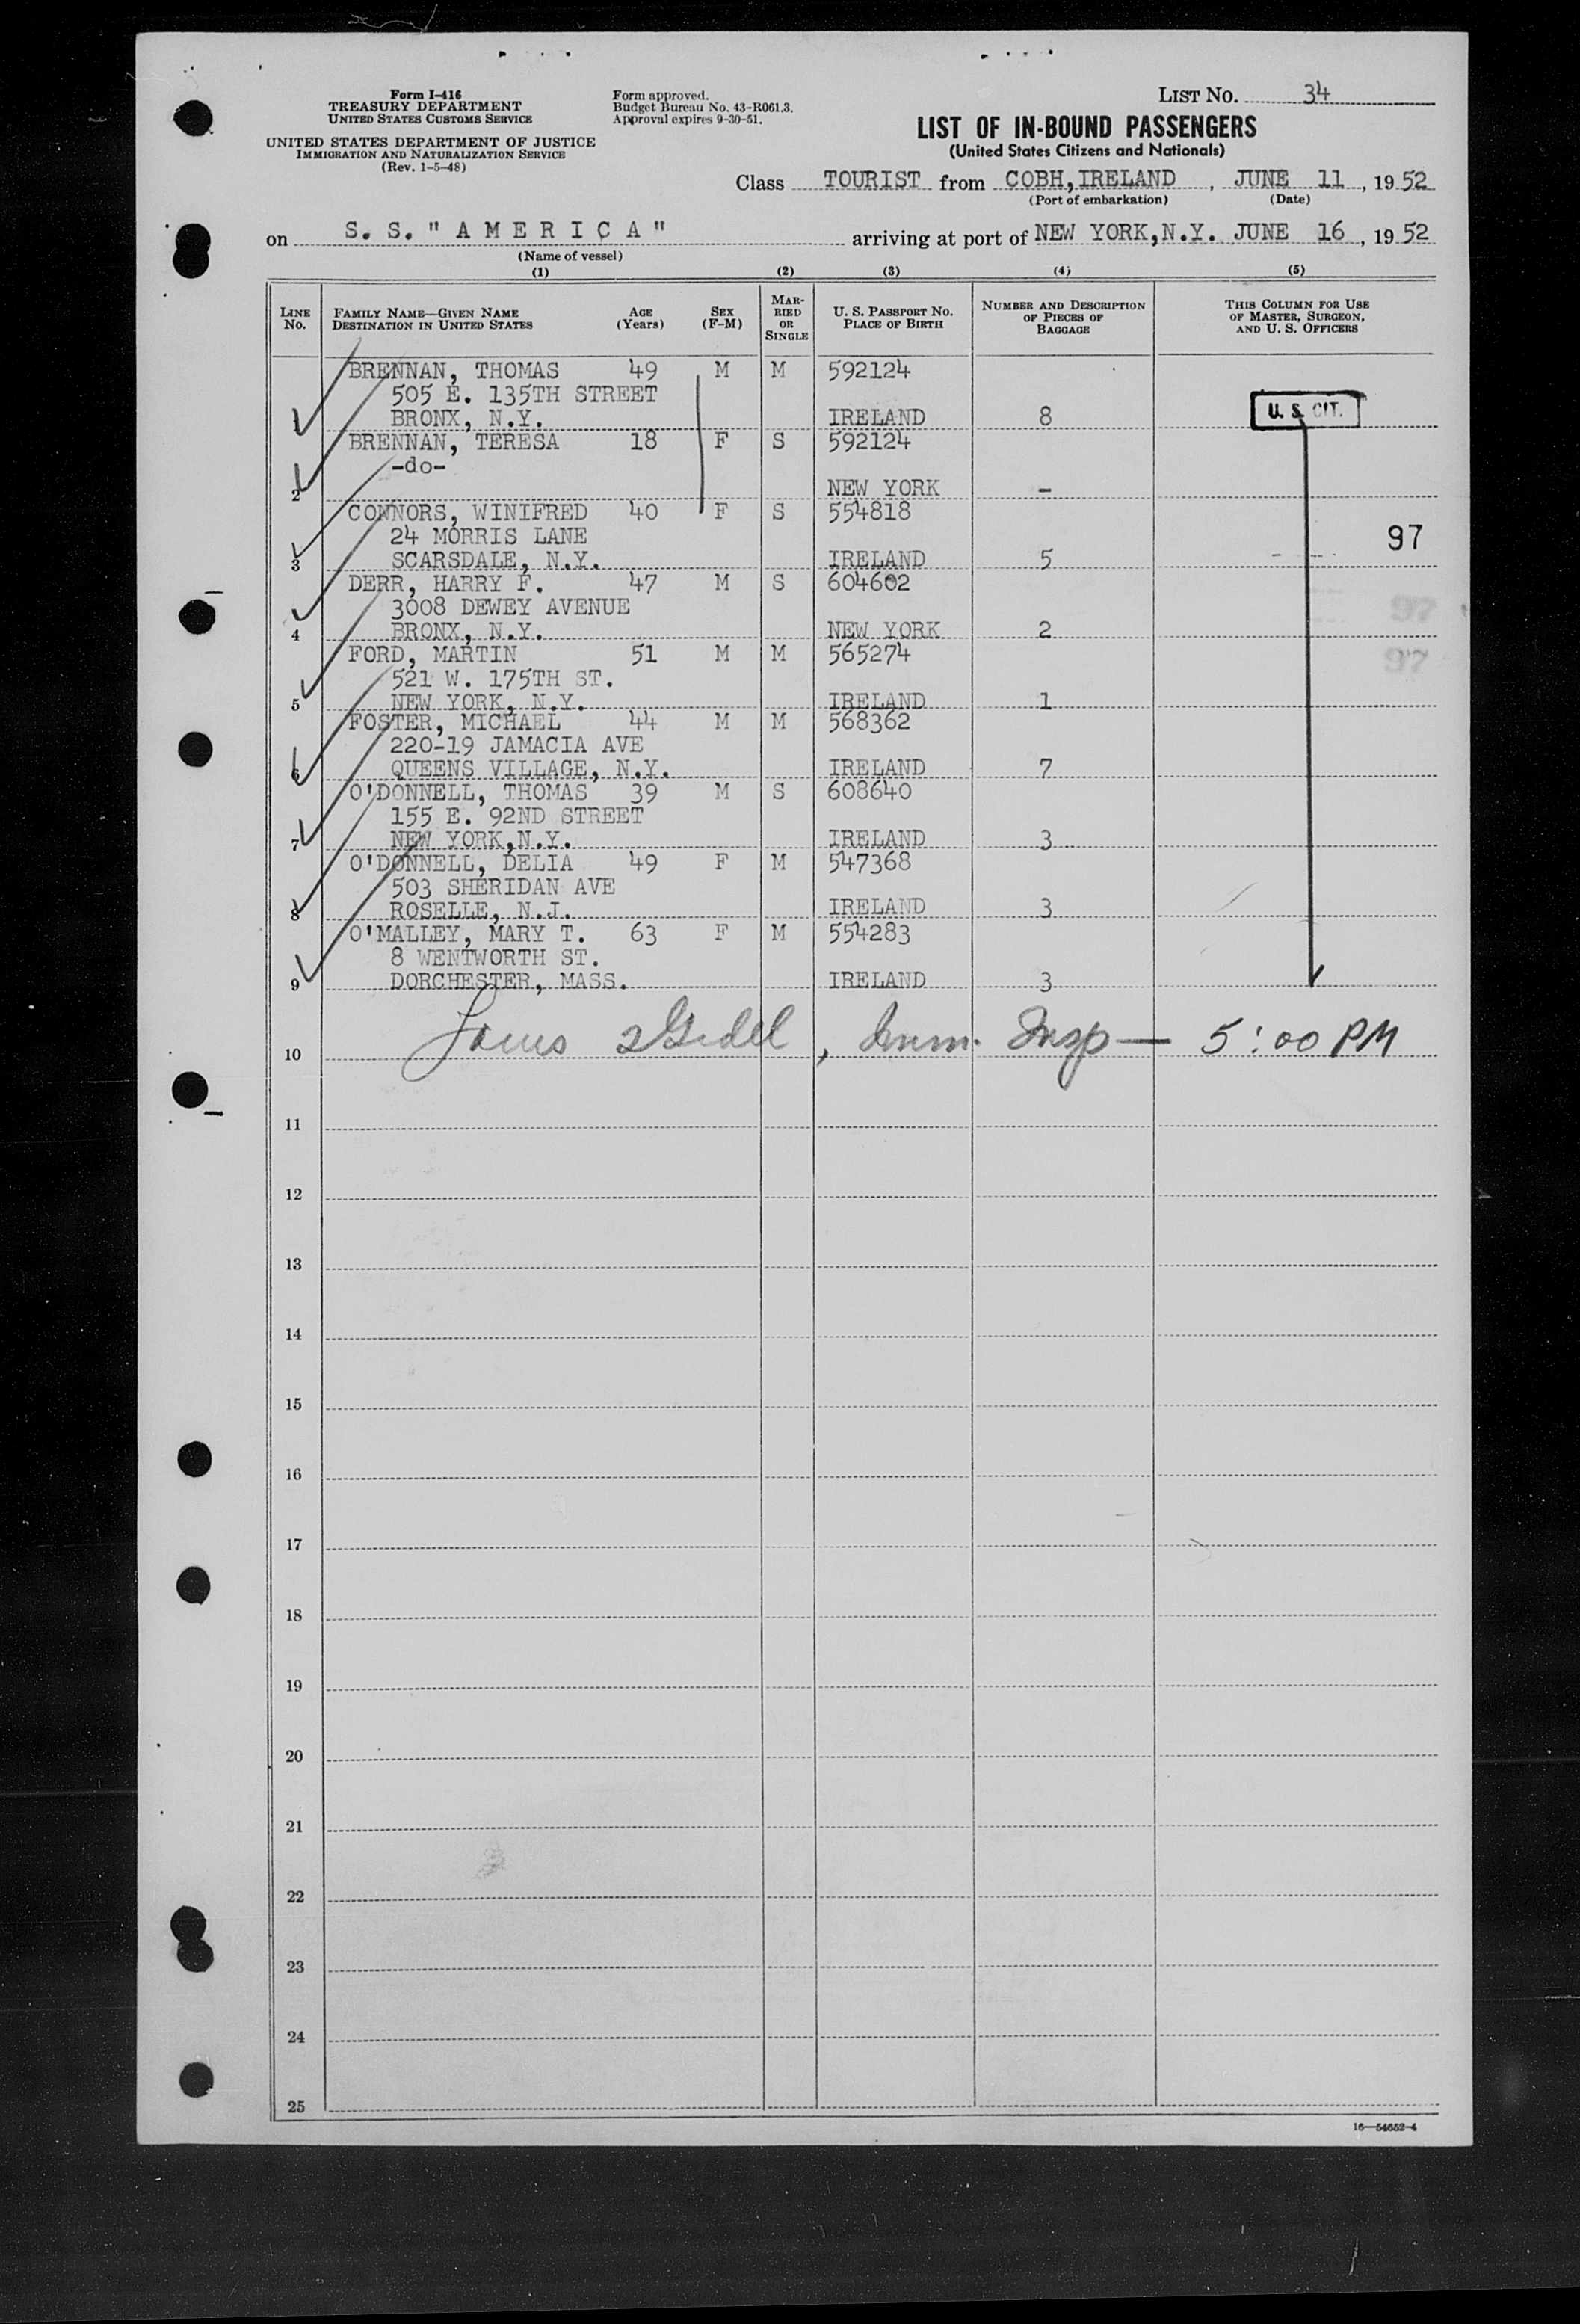 Form I-416
TREASURY DEPARTMENT
UNITED STATES CUSTOMS SERVICE
UNITED STATES DEPARTMENT OF JUSTICE
IMMIGRATION AND NATURALIZATION SERVICE
(Rev. 1-5-48)
Form approved.
Budget Bureau No. 43-R061.3.
Approval expires 9-30-51.
LIST No. 34
LIST OF IN-BOUND PASSENGERS
(United States Citizens and Nationals)
Class TOURIST from COBH, IRELAND, JUNE 11, 1952
(Port of embarkation) (Date)
on S. S. " A M E R I C A " arriving at port of NEW YORK, N.Y. JUNE 16, 1952
(Name of vessel)
(1) (2) (3) (4) (5)
LINE No. FAMILY NAME—GIVEN NAME DESTINATION IN UNITED STATES AGE (Years) SEX (F-M) MARRIED OR SINGLE U. S. PASSPORT No. PLACE OF BIRTH NUMBER AND DESCRIPTION OF PIECES OF BAGGAGE THIS COLUMN FOR USE OF MASTER, SURGEON, AND U. S. OFFICERS
BRENNAN, THOMAS 49 M M 592124
505 E. 135TH STREET
BRONX, N.Y. IRELAND 8 U. S. CIT.
BRENNAN, TERESA 18 F S 592124
-do-
2 NEW YORK -
CONNORS, WINIFRED 40 F S 554818
24 MORRIS LANE 97
3 SCARSDALE, N.Y. IRELAND 5
DERR, HARRY F. 47 M S 604602
3008 DEWEY AVENUE 97
4 BRONX, N.Y. NEW YORK 2
FORD, MARTIN 51 M M 565274 97
521 W. 175TH ST.
5 NEW YORK, N.Y. IRELAND 1
FOSTER, MICHAEL 44 M M 568362
220-19 JAMACIA AVE
6 QUEENS VILLAGE, N.Y. IRELAND 7
O'DONNELL, THOMAS 39 M S 608640
155 E. 92ND STREET
7 NEW YORK, N.Y. IRELAND 3
O'DONNELL, DELIA 49 F M 547368
503 SHERIDAN AVE
8 ROSELLE, N.J. IRELAND 3
O'MALLEY, MARY T. 63 F M 554283
8 WENTWORTH ST.
9 DORCHESTER, MASS. IRELAND 3
10 , Imm. Insp — 5:00 PM
11
12
13
14
15
16
17
18
19
20
21
22
23
24
25
16—54652-4